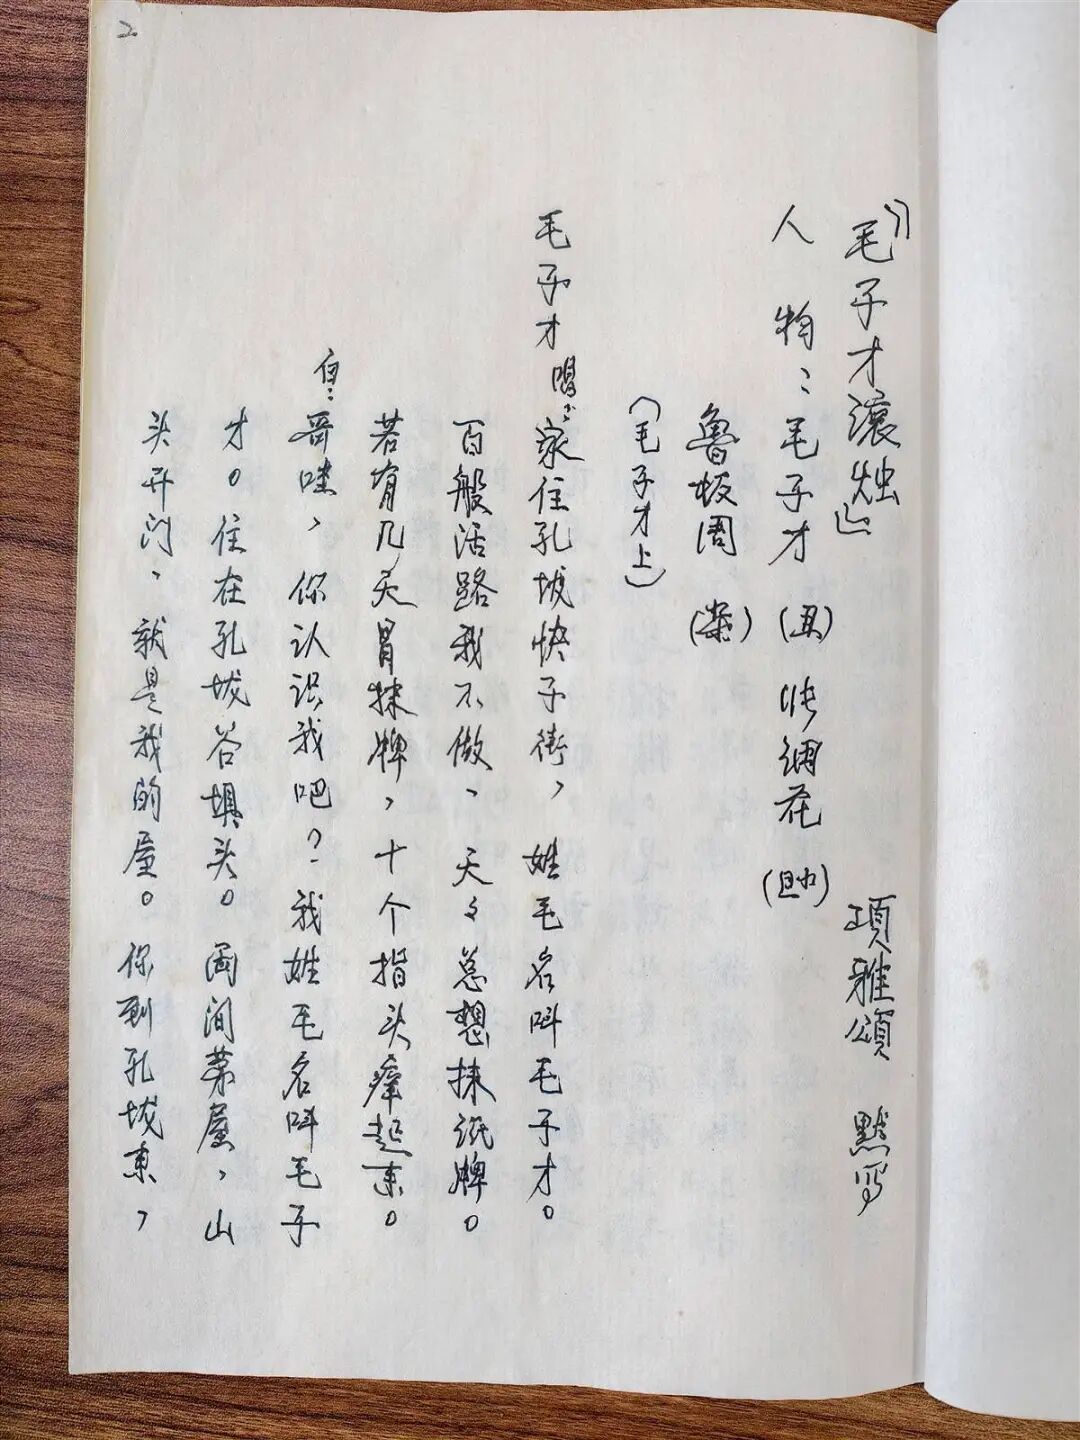 2
《毛子才滚烛》 項雅頌 默写
人物：毛子才（丑） 张绸花（旦）
魯板周（杂）
（毛子才上）
毛子才唱：家住孔城快子街，姓毛名叫毛子才。
百般活路我不做，天々总想抹纸牌。
若有几天冒抹牌，十个指头痒起来。
白：哥哇，你认识我吧？我姓毛名叫毛子
才。住在孔城谷埧头。两间茅屋，山
头开门，就是我的屋。你到孔城来，